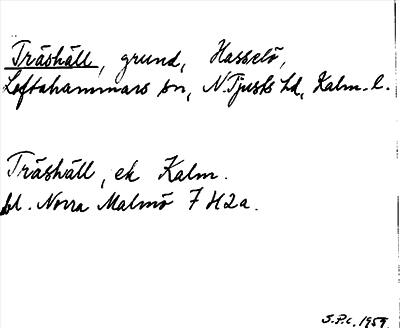 Träshäll, grund, Hasselö,
Loftahammars sn, N. Tjusts hd, Kalm. l.
Träshäll, ek Kalm.
bl. Norra Malmö 7 H2a.
S.P.C. 1959.